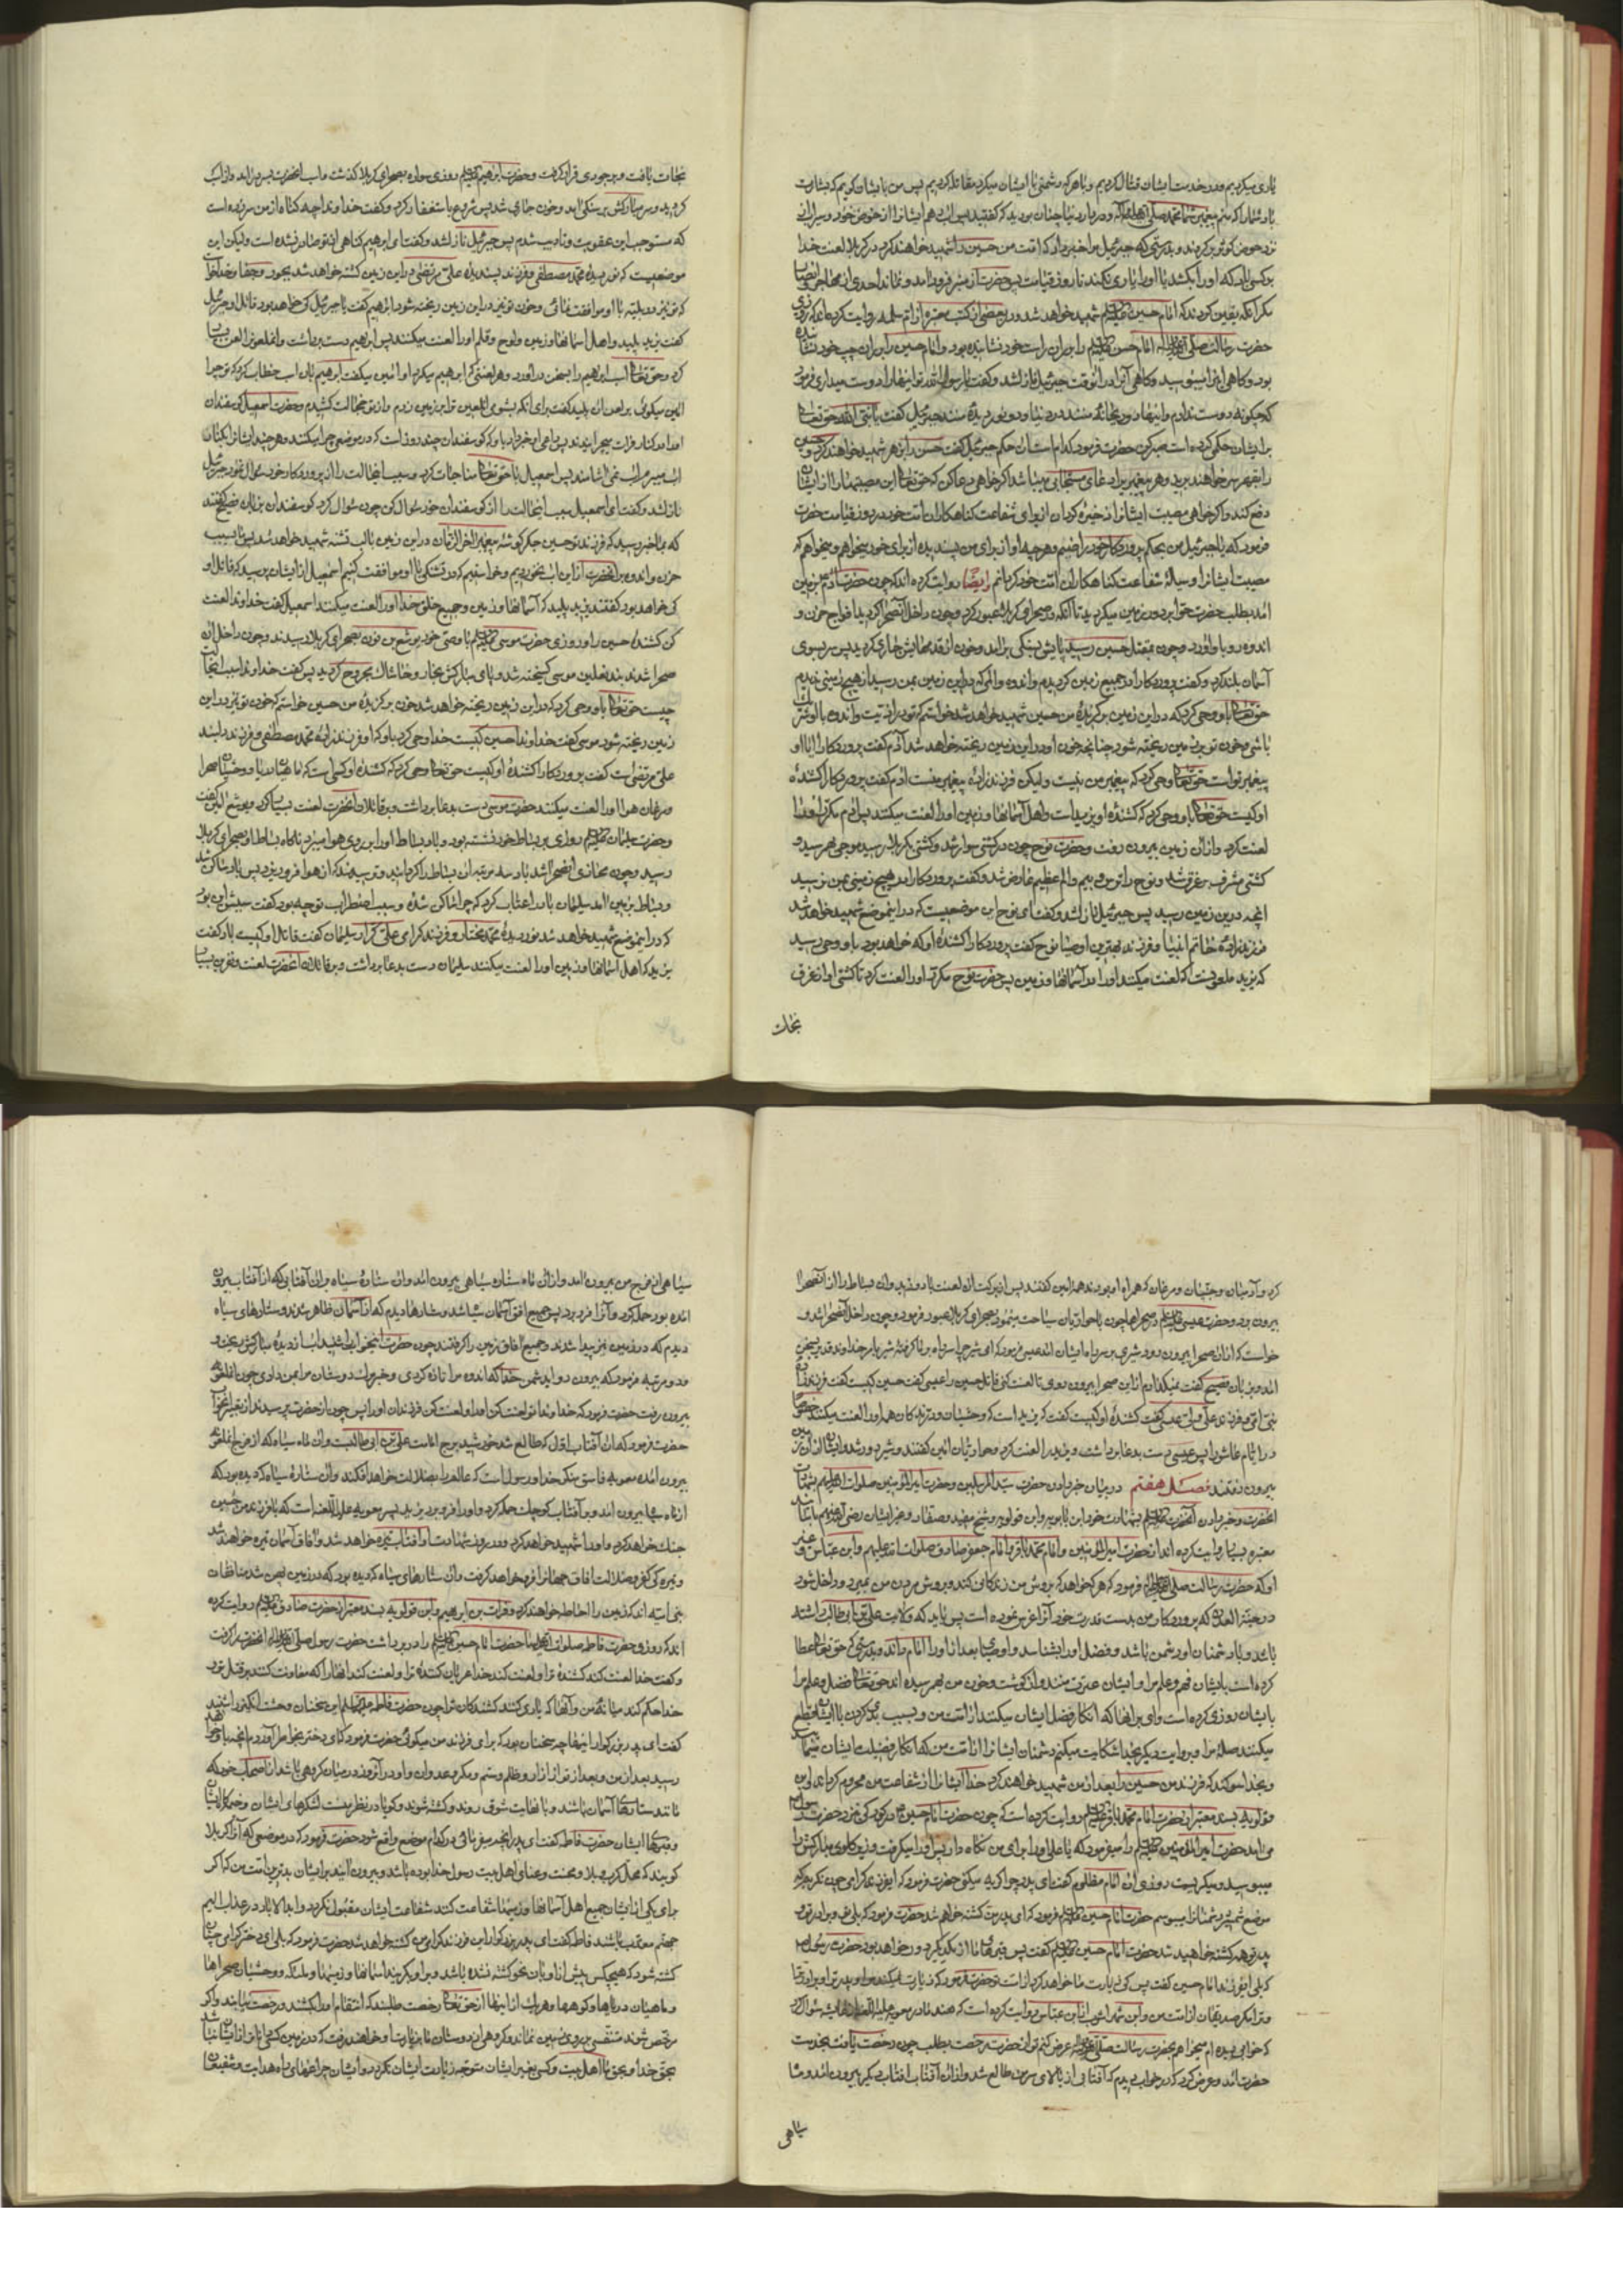 یاری میکردیم و در خدمت ایشان قتال کردیم و با هر که دشمنی با ایشان میکرد مقاتله کردیم پس من با ایشان گویم که بشارت
باد شما را که منم پیغمبر شما محمد و در دار دنیا چنان بودید که گفتید پس آب دهم ایشان را از حوض خود و سیراب
نزد حوض کوثر برگردند و بدرستی که جبرئیل مرا خبر داد که امت من حسین را شهید خواهند کرد در کربلا لعنت خدا
بر کسی باد که او را بکشد یا او را یاری نکند تا روز قیامت پس حضرت از منبر فرود آمد و نماند احدی از مهاجر و انصار
مگر آنکه یقین کردند که امام حسین شهید خواهد شد و در بعضی از کتب معتبره از ام سلمه روایت کرده اند که روزی
حضرت رسالت امام حسن را بر ران راست خود نشانیده بود و امام حسین را بر ران چپ خود نشانده
بود و گاهی این را میبوسید و گاهی آن را در آنوقت جبرئیل نازل شد و گفت یا رسول الله تو اینها را دوست میداری فرمود
که چگونه دوست ندارم و اینها دو ریحانه منند در دنیا و دو نور دیده منند جبرئیل گفت یا نبی الله حق تعالی
بر ایشان حکمی کرده است صبر کن حضرت فرمود کدام است آن حکم جبرئیل گفت حسن را بزهر شهید خواهند کرد و حسین
را بقهر سر خواهند برید و هر پیغمبری را دعای مستجابی میباشد اگر خواهی دعا کن که حق تعالی این مصیبتها را از ایشان
دفع کند و اگر خواهی مصیبت ایشان را ذخیره گردان از برای شفاعت گناهکاران امت خود در روز قیامت حضرت
فرمود که یا جبرئیل من بحکم پروردگار خود راضیم و هر چه او از برای من پسندیده از برای خود میخواهم و میخواهم که
مصیبت ایشان را وسیله شفاعت گناهکاران امت خود گردانم ایضا روایت کرده اند که چون حضرت آدم بزمین
آمد بطلب حضرت حوا بر دور زمین میگردید تا آنکه در صحرای کربلا عبور کرد و چون داخل آن صحرا گردید افواج حزن و
اندوه رو باو آورد و چون بمقتل حسین رسید پایش بسنگی برآمد و خون از قدمهایش جاری گردید پس سر بسوی
آسمان بلند کرد و گفت پروردگارا در جمیع زمین گردیدم و اندوه و المی که در این زمین بمن رسید از هیچ زمینی ندیدم
حق تعالی باو وحی کرد که در این زمین برگزیده من حسین شهید خواهد شد خواستم که تو در اذیت و اندوه با او شریک
باشی و خون تو بر زمین ریخته شود چنانچه خون او در این زمین ریخته خواهد شد آدم گفت پروردگارا آیا او
پیغمبر تو است حق تعالی وحی کرد که پیغمبر من نیست ولیکن فرزندزاده پیغمبر منست آدم گفت پروردگارا کشنده
او کیست حق تعالی باو وحی کرد که کشنده او یزید است و اهل آسمانها و زمین او را لعنت میکنند پس آدم مکرر او را
لعنت کرد و از آن زمین بیرون رفت و حضرت نوح چون در کشتی سوار شد و کشتی بکربلا رسید موجی بهم رسید و
کشتی مشرف بر غرق شد و نوح را ترس و بیم و الم عظیم عارض شد و گفت پروردگارا در هیچ زمینی بمن نرسید
آنچه در این زمین رسید پس جبرئیل نازل شد و گفت ای نوح این موضعیست که در اینموضع شهید خواهد شد
فرزندزاده خاتم انبیا و فرزند بهترین اوصیا نوح گفت پروردگارا کشنده او که خواهد بود باو وحی رسید
که یزید ملعونیست که لعنت میکنند او را در آسمانها و زمین پس حضرت نوح مکرر او را لعنت کرد تا کشتی او از غرق
نجات
نجات یافت و بر جودی قرار گرفت و حضرت ابراهیم روزی سواره بصحرای کربلا گذشت و اسب آنحضرت بسر درآمد و از اسب
گردید و سر مبارکش بر سنگی آمد و خون جاری شد پس شروع باستغفار کرد و گفت خداوندا چه گناه از من سر زده است
که مستوجب این عقوبت و تادیب شدم پس جبرئیل نازل شد و گفت ای ابراهیم گناهی از تو صادر نشده است ولیکن این
موضعیست که نور دیده محمد مصطفی و فرزند پسندیده علی مرتضی در این زمین کشته خواهد شد بجور و جفا و خدا خواست
که تو نیز در بلیه با او موافقت نمائی و خون تو نیز در این زمین ریخته شود ابراهیم گفت یا جبرئیل که خواهد بود قاتل او جبرئیل
گفت یزید پلید و اهل آسمانها و زمین و لوح و قلم او را لعنت میکنند پس ابراهیم دست برداشت و آن ملعون را لعن بسیار
کرد و حق تعالی اسب ابراهیم را بسخن درآورد و هر لعنتی که ابراهیم میکرد او آمین میگفت ابراهیم بآن اسب خطاب کرد که تو چرا
آمین میگوئی بر لعن آن پلید گفت برای آنکه بشومی آن لعین ترا بر زمین زدم و از تو خجالت کشیدم و حضرت اسمعیل گوسفندان
او در کنار فرات میچرانیدند پس راعی او خبر داد باو که گوسفندان چند روز است که در موضعی چرا میکنند و هر چند ایشان را بکنار
آب میبرم آب نمی آشامند پس اسمعیل با حق تعالی مناجات کرد و سبب اینحالت را از پروردگار خود سوال نمود جبرئیل
نازل شد و گفت ای اسمعیل سبب اینحالت را از گوسفندان خود سوال کن چون سوال کرد گوسفندان بزبان فصیح گفتند
که بما خبر رسید که فرزند تو حسین جگرگوشه پیغمبر آخر الزمان در این زمین با لب تشنه شهید خواهد شد پس ما بسبب
حزن و اندوه بر آنحضرت از این آب نخوردیم و خواستیم که در تشنگی با او موافقت کنیم اسمعیل از ایشان پرسید که قاتل او
که خواهد بود گفتند یزید پلید که آسمانها و زمین و جمیع خلق خدا او را لعنت میکنند اسمعیل گفت خداوندا لعنت
کن کشنده حسین را و روزی حضرت موسی با وصی خود یوشع بن نون بصحرای کربلا رسیدند و چون داخل آن
صحرا شدند بند نعلین موسی گسیخته شد و پای مبارکش بخار و خاشاک مجروح گردید پس گفت خداوندا سبب اینحالت
چیست حق تعالی باو وحی کرد که در این زمین ریخته خواهد شد خون برگزیده من حسین خواستم که خون تو نیز در این
زمین ریخته شود موسی گفت خداوندا حسین کیست خدا وحی کرد باو که او فرزندزاده محمد مصطفی و فرزند دلبند
علی مرتضی است گفت پروردگارا کشنده او کیست حق تعالی وحی کرد که کشنده او کسی است که ماهیان دریا و وحشیان صحرا
و مرغان هوا او را لعنت میکنند حضرت موسی دست بدعا برداشت و بر قاتلان آنحضرت لعنت بسیار کرد و یوشع آمین گفت
و حضرت سلیمان روزی بر بساط خود نشسته بود و باد بساط او را بر روی هوا میبرد ناگاه بساط او بصحرای کربلا
رسید و چون محاذی آنصحرا شد باد سه مرتبه آن بساط را گردانید و ترسیدند که از هوا فرو ریزد پس باد ساکن شد
و بساط بزمین آمد سلیمان باد را عتاب کرد که چرا ساکن شدی و سبب اضطراب تو چه بود گفت سببش این بود
که در اینموضع شهید خواهد شد نور دیده محمد مختار و فرزند گرامی علی کرار سلیمان گفت قاتل او کیست باد گفت
یزید که اهل آسمانها و زمین او را لعنت میکنند سلیمان دست بدعا برداشت و بر قاتلان آنحضرت لعنت و نفرین بسیار
کرد و آدمیان و جنیان و مرغان که همراه او بودند همه آمین گفتند پس از برکت آن لعنت باد وزید و آن بساط را از آنصحرا
بیرون برد و حضرت عیسی در صحراها چون با حواریان سیاحت مینمود بصحرای کربلا عبور فرمود و چون داخل آنصحرا شد و
خواست که از آن صحرا بیرون رود شیری بر سر راه ایشان آمد عیسی فرمود که ای شیر چرا سر راه بر ما گرفته شیر بامر خداوند قدیر بسخن
آمد و بزبان فصیح گفت نمیگذارم از این صحرا بیرون روی تا لعنت کنی قاتل حسین را عیسی گفت حسین کیست گفت فرزندزاده
نبی امی و فرزند علی ولی عیسی گفت کشنده او کیست گفت که یزید است که وحشیان و درندگان همه او را لعنت میکنند خصوصا
در ایام عاشورا پس عیسی دست بدعا برداشت و یزید را لعنت کرد و حواریان آمین گفتند و شیر دور شد و ایشان از آن زمین
بیرون رفتند فصل هفتم در بیان خبر دادن حضرت سید المرسلین و حضرت امیر المؤمنین بشهادت
آنحضرت و خبر دادن آنحضرت بشهادت خود ابن بابویه و ابن قولویه و شیخ مفید و صفار و غیر ایشان باسانید
معتبره بسیار روایت کرده اند از حضرت امیر المؤمنین و امام محمد باقر و امام جعفر صادق صلوات الله علیهم و ابن عباس و غیر
او که حضرت رسالت فرمود که هر که خواهد که بروش من زندگانی کند و بروش مردن من بمیرد و داخل شود
در جنة العدن که پروردگار من بدست قدرت خود آنرا غرس نموده است پس باید که ولایت علی بن ابی طالب داشته
باشد و با دشمنان او دشمن باشد و فضل او را بشناسد و اوصیا بعد از او را امام داند و بدرستی که حق تعالی عطا
کرده است بایشان فهم و علم مرا و ایشان عترت منند و از گوشت و خون من بهم رسیده اند حق تعالی فضل و علم مرا
بایشان روزی کرده است وای بر آنها که انکار فضل ایشان میکنند از امت من و بسبب بدی کردن با ایشان قطع
میکنند صله مرا و بروایت دیگر بخدا شکایت میکنم دشمنان ایشان را از امت من که انکار فضیلت ایشان نمایند
و بخدا سوگند که فرزند من حسین را بعد از من شهید خواهند کرد خدا ایشان را از شفاعت من محروم گرداند ابن
قولویه بسند معتبر از حضرت امام محمد باقر روایت کرده است که چون حضرت امام حسین در کودکی نزد حضرت رسول
می آمد حضرت امیر المؤمنین را میفرمود که یا علی او را برای من نگاه دار پس او را میگرفت و زیر گلوی مبارکش را
میبوسید و میگریست روزی آن امام مظلوم گفت ای پدر چرا گریه میکنی حضرت فرمود که ای فرزند گرامی چون نگریم که
موضع شمشیر دشمنان را میبوسم حضرت امام حسین فرمود که ای پدر من کشته خواهم شد حضرت فرمود که بلی تو و برادر تو و
پدر تو همه کشته خواهید شد حضرت امام حسین گفت پس قبرهای ما از یکدیگر دور خواهد بود حضرت فرمود
که بلی ای فرزند امام حسین گفت پس که زیارت ما خواهد کرد از امت تو حضرت فرمود که زیارت نمیکند مرا و پدر ترا و برادر ترا
و ترا مگر صدیقان از امت من و ابن شهر آشوب از ابن عباس روایت کرده است که هند مادر معویه از عایشه سؤال کرد
که خوابی دیده ام میخواهم بحضرت رسالت عرض کنم تو از آن حضرت رخصت بطلب چون رخصت یافت بخدمت
حضرت آمد و عرض کرد که در خواب دیدم که آفتابی از بالای سر من طالع شد و از آن آفتاب آفتاب دیگر بیرون آمد و ماه
سیاهی
سیاهی از فرج من بیرون آمد و از آن ماه ستاره سیاهی بیرون آمد و آن ستاره سیاه بر آن آفتابی که از آفتاب بیرون
آمده بود حمله کرد و آنرا فرو برد پس جمیع افق آسمان سیاه شد و ستارها دیدم که از آسمان ظاهر شدند و ستارهای سیاه
دیدم که در زمین نیز پیدا شدند و جمیع آفاق زمین را گرفتند چون حضرت اینخواب را شنید آب از دیده مبارکش ریخت و
دو مرتبه فرمود که بیرون رو ای دشمن خدا که اندوه مرا تازه کردی و خبر مرگ دوستان مرا بمن دادی چون آن ملعونه
بیرون رفت حضرت فرمود که خداوندا تو لعنت کن او را و لعنت کن فرزندان او را پس چون از حضرت پرسیدند از تعبیر آن خواب
حضرت فرمود که آن آفتاب اول که طالع شد خورشید برج امامت علی بن ابی طالبست و آن ماه سیاه که از فرج آن ملعونه
بیرون آمده معویه فاسق منکر خدا و رسول است که عالم را بضلالت خواهد افکند و آن ستاره سیاه که دیده بود که
از ماه سیاه بیرون آمد و بر آفتاب کوچک حمله کرد و او را فرو برد یزید پسر معویه علیه اللعنه است که با فرزند من حسین
جنگ خواهد کرد و او را شهید خواهد کرد و در روز شهادت او آفتاب تیره خواهد شد و آفاق آسمان تیره خواهد شد
و تیره کی کفر و ضلالت آفاق جهان را فرو خواهد گرفت و آن ستارهای سیاه که دیده بود که در زمین پهن شدند منافقان
بنی امیه اند که زمین را احاطه خواهند کرد و فرات بن ابراهیم و ابن قولویه بسند معتبر از حضرت صادق روایت کرده
اند که روزی حضرت فاطمه حضرت امام حسین را در بر داشت حضرت رسول آنحضرت را گرفت
و گفت خدا لعنت کند کشنده ترا و لعنت کند خدا عریان کننده ترا و لعنت کند آنها را که معاونت کنند بر قتل تو و
خدا حکم کند میانه من و آنها که یاری کنند کشندگان ترا چون حضرت فاطمه این سخنان وحشت انگیز را شنید
گفت ای پدر بزرگوار اینها چه سخنان بود که برای فرزند من میگوئی حضرت فرمود که ای دختر بخاطر آوردم آنچه باو خواهد
رسید بعد از من و بعد از تو از آزار و ظلم و ستم و مکر و عدوان و او در آن روز در میان گروهی باشد از اصحاب خود که
مانند ستارهای آسمان باشند و با نهایت شوق روند و کشته شوند و گویا در نظر منست لشکرهای ایشان و خیمهای ایشان
و قبرهای ایشان حضرت فاطمه گفت ای پدر آنچه میفرمائی در کدام موضع واقع شود حضرت فرمود که در موضعی که آنرا کربلا
گویند که محل کرب و بلا و محنت و عنای اهل بیت رسول خدا بوده باشد و بیرون آیند بر ایشان بدترین امت من که اگر
برای یکی از ایشان جمیع اهل آسمانها و زمینها شفاعت کنند شفاعت ایشان مقبول نگردد و ابد الاباد در عذاب الیم
جهنم معذب باشند فاطمه گفت ای پدر بزرگوار این فرزند گرامی من کشته خواهد شد حضرت فرمود که بلی ای دختر گرامی چنان
کشته شود که هیچکس پیش از او بآن نحو کشته نشده باشد و بر او بگریند آسمانها و زمینها و ملائکه و وحشیان صحراها
و ماهیان دریاها و کوهها و هر یک از اینها از حق تعالی رخصت طلبند که انتقام او را بکشند و رخصت نیابند و اگر
مرخص شوند متنفسی بر روی زمین نماند و گروهی از دوستان ما بزیارت او خواهند رفت که در زمین کسی داناتر از ایشان نباشد
بحق خدا و بحق ما اهل بیت و کسی بغیر ایشان متوجه زیارت ایشان نگردد و ایشان چراغهای راه هدایت و شفیعان